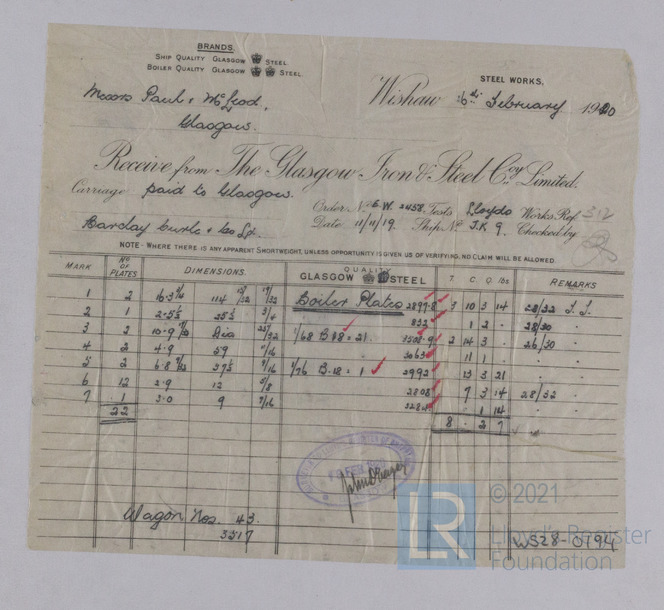 BRANDS.
SHIP QUALITY GLASGOW STEEL
BOILER QUALITY GLASGOW STEEL
STEEL WORKS.
Messrs Paul & McLeod,
Glasgow.
Wishaw 6th February 1920
Receive from The Glasgow Iron & Steel Coy Limited.
Carriage paid to Glasgow.
Order No E.W. 2458 Tests Lloyds Works Ref 312
Barclay Curle & Co Ld.
Date 11/11/19. Ship No J.K 9. Checked by
NOTE - WHERE THERE IS ANY APPARENT SHORTWEIGHT, UNLESS OPPORTUNITY IS GIVEN US OF VERIFYING, NO CLAIM WILL BE ALLOWED.
MARK No OF PLATES DIMENSIONS. QUALITY GLASGOW STEEL T. C. Q. lbs. REMARKS
1 2 114 7/32 Boiler Plates 2897.8 3 10 3 14 28/32
2 1 3/4 832 . 1 2 . 28/30
3 2 Dia 1/68 B.18 = 21. 2 14 3 . 26/30
4 2 4.9 59 3063 11 1 .
5 2 9/16 1/76 B.18 = 1 2992 13 3 21
6 12 2.9 12 5/8 2808 7 3 14 28/32
7 1 2.0 9 9/16 1 14
22
8 . 2 7
FEB
Wagon Nos. 43.
3517
LR
© 2021
Lloyd's Register
Foundation
WS28-0194